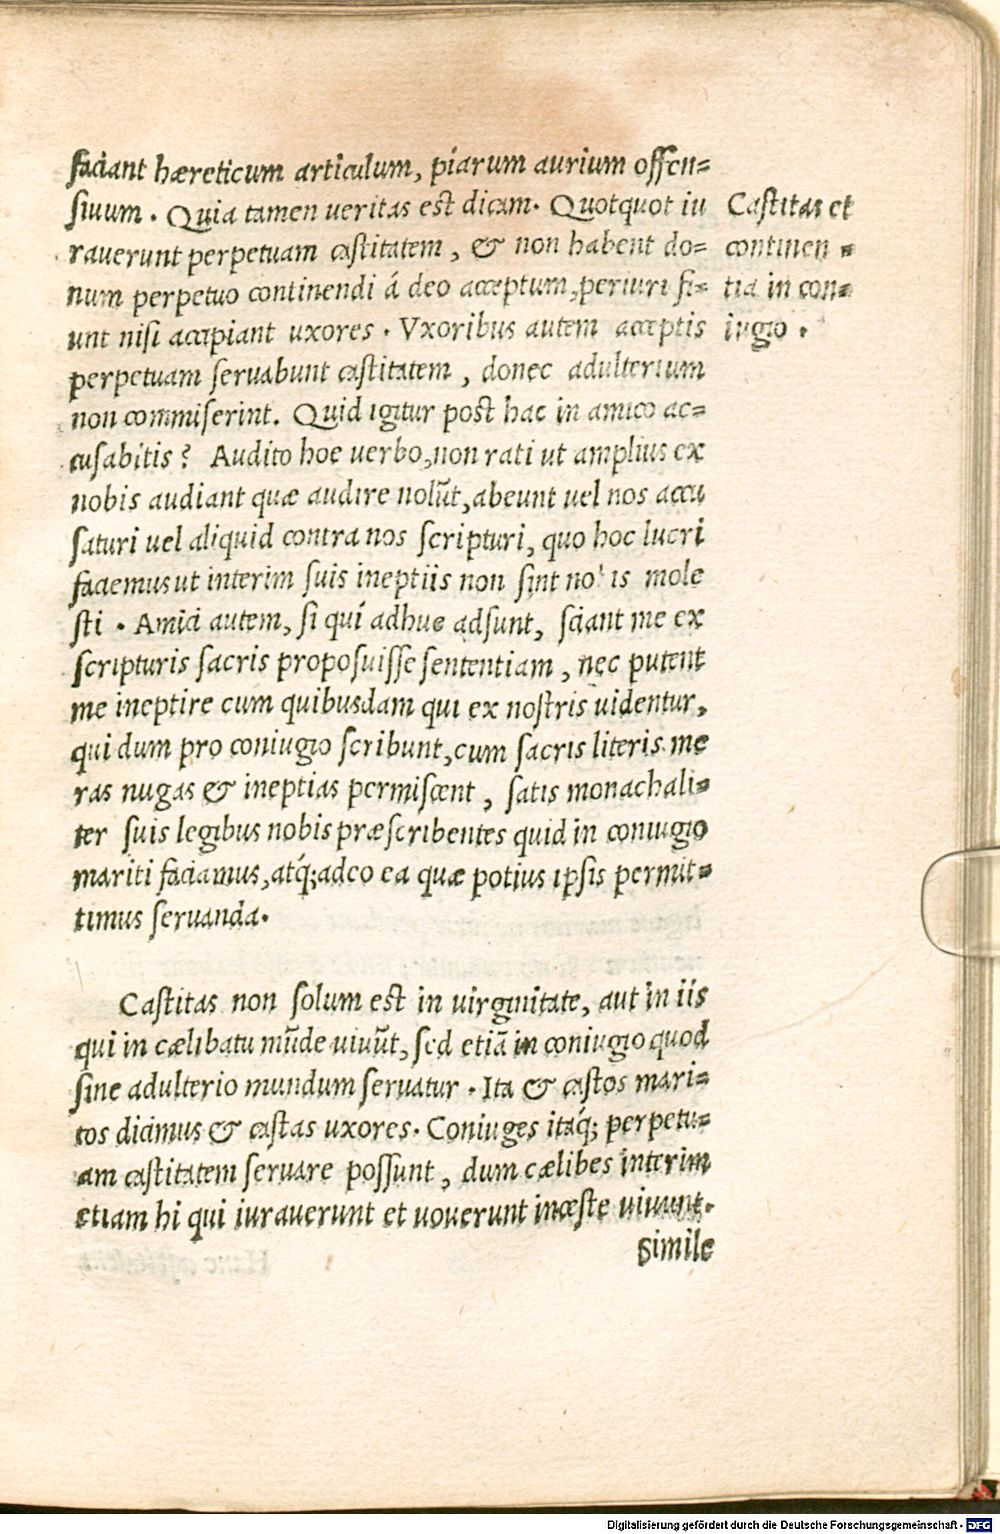 faciant hæreticum articulum, piarum aurium offen=
siuum. Quia tamen ueritas est dicam. Quotquot iu
rauerunt perpetuam castitatem, & non habent do=
num perpetuo continendi á deo acceptum, periuri fi=
unt nisi accipiant uxores. Vxoribus autem acceptis
perpetuam seruabunt castitatem, donec adulterium
non commiserint. Quid igitur post hac in amico ac=
cusabitis? Audito hoc uerbo, non rati ut amplius ex
nobis audiant quæ audire nolũt, abeunt uel nos accu
saturi uel aliquid contra nos scripturi, quo hoc lucri
faciemus ut interim suis ineptiis non sint nobis mole
sti. Amici autem, si qui adhuc adsunt, sciant me ex
scripturis sacris proposuisse sententiam, nec putent
me ineptire cum quibusdam qui ex nostris uidentur,
qui dum pro coniugio scribunt, cum sacris literis me
ras nugas & ineptias permiscent, satis monachali=
ter suis legibus nobis præscribentes quid in coniugio
mariti faciamus, atq́; adeo ea quæ potius ipsis permit=
timus seruanda.
Castitas et
continen=
tia in con=
iugio.
Castitas non solum est in uirginitate, aut in iis
qui in cælibatu mũde uiuũt, sed etiã in coniugio quod
sine adulterio mundum seruatur. Ita & castos mari=
tos dicimus & castas uxores. Coniuges itaq́; perpetu=
am castitatem seruare possunt, dum cælibes interim
etiam hi qui iurauerunt et uouerunt inceste uiuunt.
simile
Digitalisierung gefördert durch die Deutsche Forschungsgemeinschaft - DFG